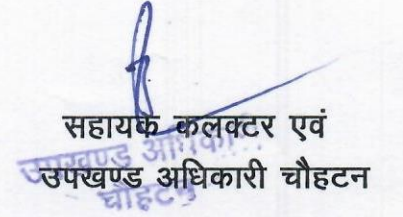 सहायक कलक्टर एवं
उपखण्ड अधिकारी चौहटन
उपखण्ड
चौहटन